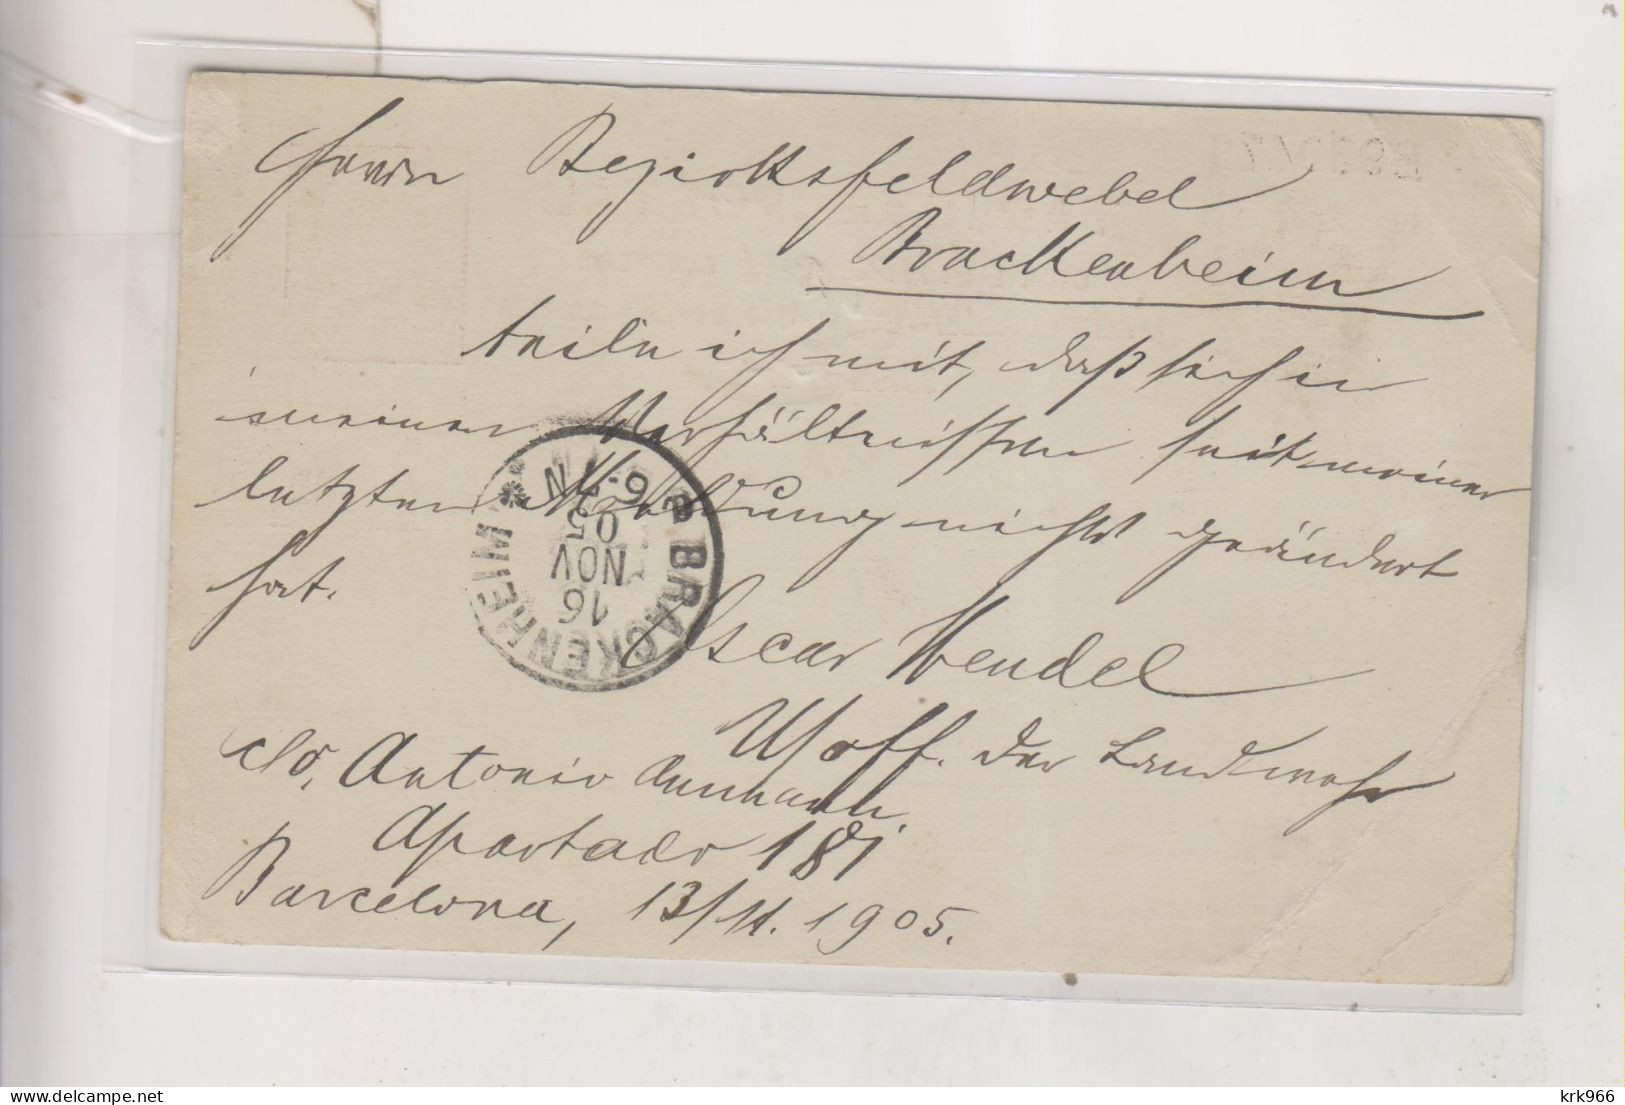 Herrn Bezirksfeldwebel
Brackenheim
teile ich mit, daß sich in
meinen Verhältnissen seit meiner
letzten Meldung nicht geändert
hat.
Oscar Wendel
Uoff. der Landwehr
c/o. Antonio Ammann.
Apartado 181
Barcelona, 13/11. 1905.
BRACKENHEIM
16
NOV
05
6-7N
delcampe.net
krk966